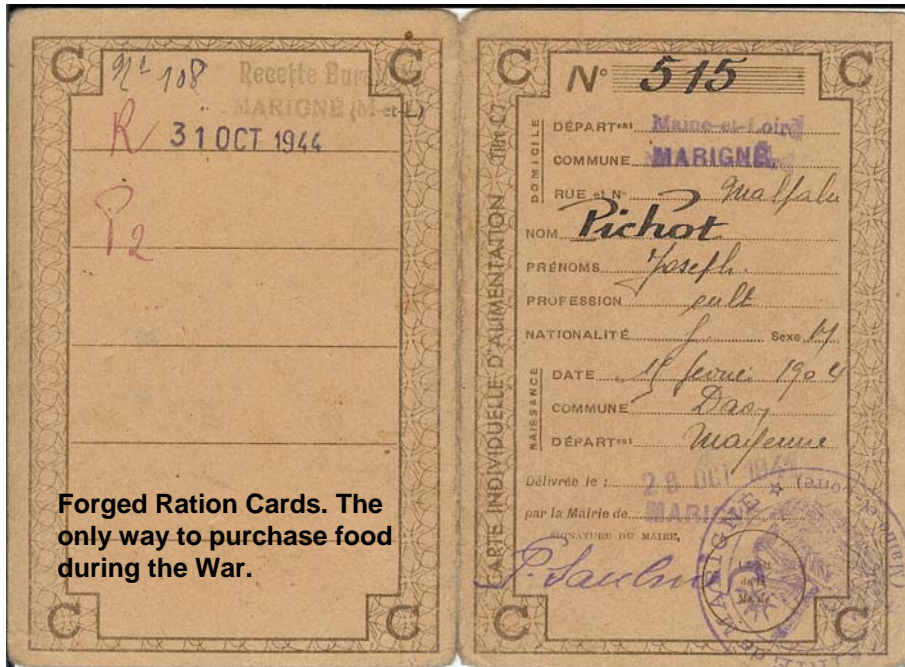 C
Nº 108
C
Recette Bur
MARIGNÉ (M-et-L)
R
31 OCT 1944
P2
Forged Ration Cards. The
only way to purchase food
during the War.
C
C
CARTE INDIVIDUELLE D'ALIMENTATION (Titre C)
C
Nº 515
C
DOMICILE
DÉPARTent Maine-et-Loire
COMMUNE MARIGNÉ
RUE et Nº
NOM Pichot
PRÉNOMS Joseph.
PROFESSION cult
NATIONALITÉ f. Sexe M
NAISSANCE
DATE février 1904
COMMUNE
DÉPARTent Mayenne
Délivrée le : 28 OCT 1944
par la Mairie de MARIGNÉ
SIGNATURE DU MAIRE,
C
C